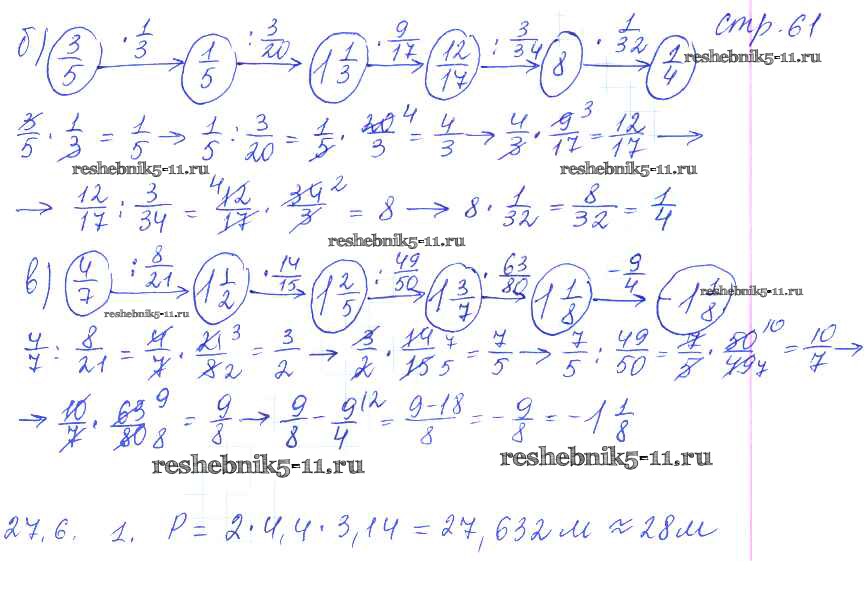 стр. 61
б) 3/5 · 1/3 → 1/5 : 3/20 → 1 1/3 · 9/17 → 12/17 : 3/34 → 8 · 1/32 → 1/4
reshebnik5-11.ru
3/5 · 1/3 = 1/5 → 1/5 : 3/20 = 1/5 · 20 4/3 = 4/3 → 4/3 · 9 3/17 = 12/17 →
reshebnik5-11.ru reshebnik5-11.ru
→ 12/17 : 3/34 = 4 12/17 · 34 2/3 = 8 → 8 · 1/32 = 8/32 = 1/4
reshebnik5-11.ru
в) 4/7 : 8/21 → 1 1/2 · 14/15 → 1 2/5 : 49/50 → 1 3/7 · 63/80 → 1 1/8 - 9/4 → -1 1/8
reshebnik5-11.ru reshebnik5-11.ru
4/7 : 8/21 = 4/7 · 21 3/8 2 = 3/2 → 3/2 · 14 7/15 5 = 7/5 → 7/5 : 49/50 = 7/5 · 50 10/49 7 = 10/7 →
→ 10/7 · 63 9/80 8 = 9/8 → 9/8 - 9/4 |2 = 9-18/8 = - 9/8 = -1 1/8
reshebnik5-11.ru reshebnik5-11.ru
27.6. 1. P = 2 · 4,4 · 3,14 = 27,632 м ≈ 28 м